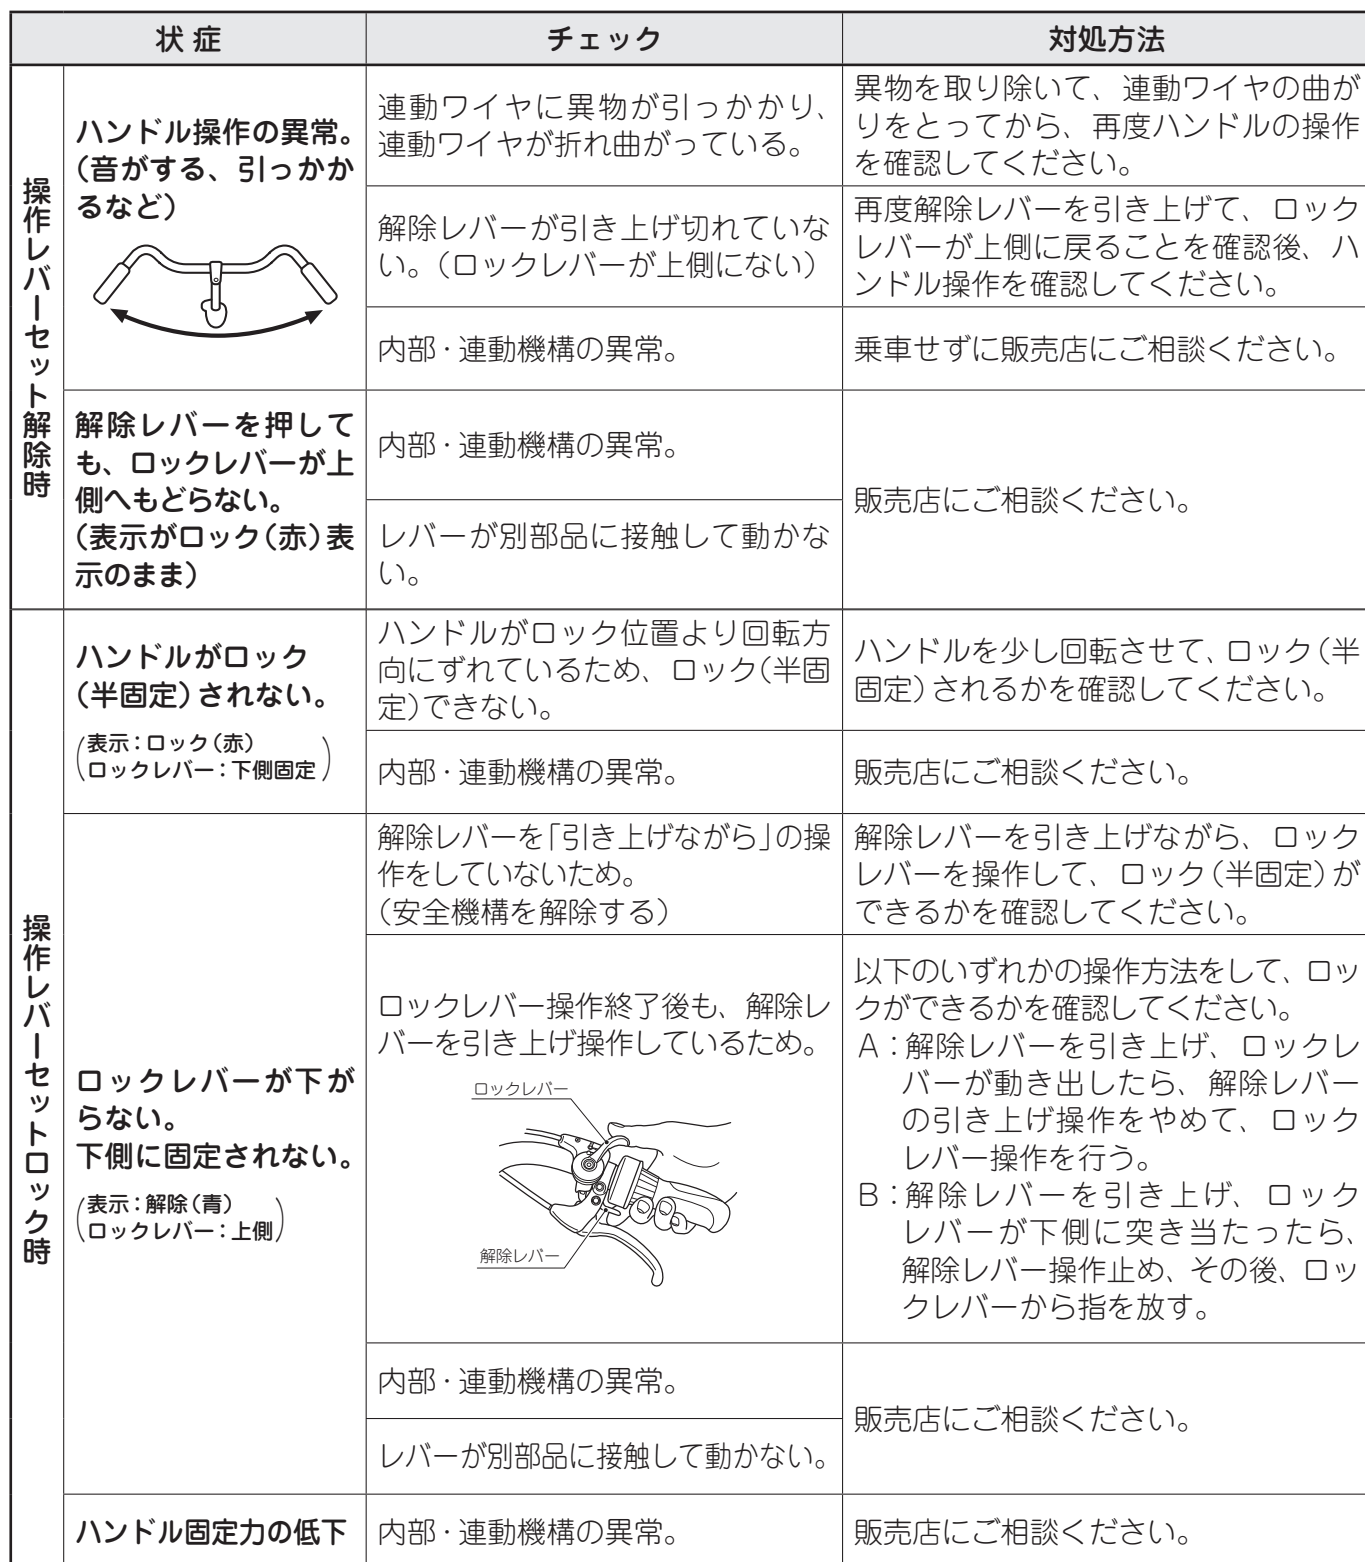 状 症
チェック
対処方法
操作レバーセット解除時
ハンドル操作の異常。
(音がする、引っかか
るなど)
連動ワイヤに異物が引っかかり、
連動ワイヤが折れ曲がっている。
異物を取り除いて、連動ワイヤの曲が
りをとってから、再度ハンドルの操作
を確認してください。
解除レバーが引き上げ切れていな
い。(ロックレバーが上側にない)
再度解除レバーを引き上げて、ロック
レバーが上側に戻ることを確認後、ハ
ンドル操作を確認してください。
内部・連動機構の異常。
乗車せずに販売店にご相談ください。
解除レバーを押して
も、ロックレバーが上
側へもどらない。
(表示がロック(赤)表
示のまま)
内部・連動機構の異常。
レバーが別部品に接触して動かな
い。
販売店にご相談ください。
操作レバーセットロック時
ハンドルがロック
(半固定)されない。
(表示:ロック(赤)
ロックレバー:下側固定)
ハンドルがロック位置より回転方
向にずれているため、ロック(半固
定)できない。
ハンドルを少し回転させて、ロック(半
固定)されるかを確認してください。
内部・連動機構の異常。
販売店にご相談ください。
ロックレバーが下が
らない。
下側に固定されない。
(表示:解除(青)
ロックレバー:上側)
解除レバーを「引き上げながら」の操
作をしていないため。
(安全機構を解除する)
解除レバーを引き上げながら、ロック
レバーを操作して、ロック(半固定)が
できるかを確認してください。
ロックレバー操作終了後も、解除レ
バーを引き上げ操作しているため。
ロックレバー
解除レバー
以下のいずれかの操作方法をして、ロッ
クができるかを確認してください。
A:解除レバーを引き上げ、ロックレ
バーが動き出したら、解除レバー
の引き上げ操作をやめて、ロック
レバー操作を行う。
B:解除レバーを引き上げ、ロック
レバーが下側に突き当たったら、
解除レバー操作止め、その後、ロッ
クレバーから指を放す。
内部・連動機構の異常。
レバーが別部品に接触して動かない。
販売店にご相談ください。
ハンドル固定力の低下
内部・連動機構の異常。
販売店にご相談ください。